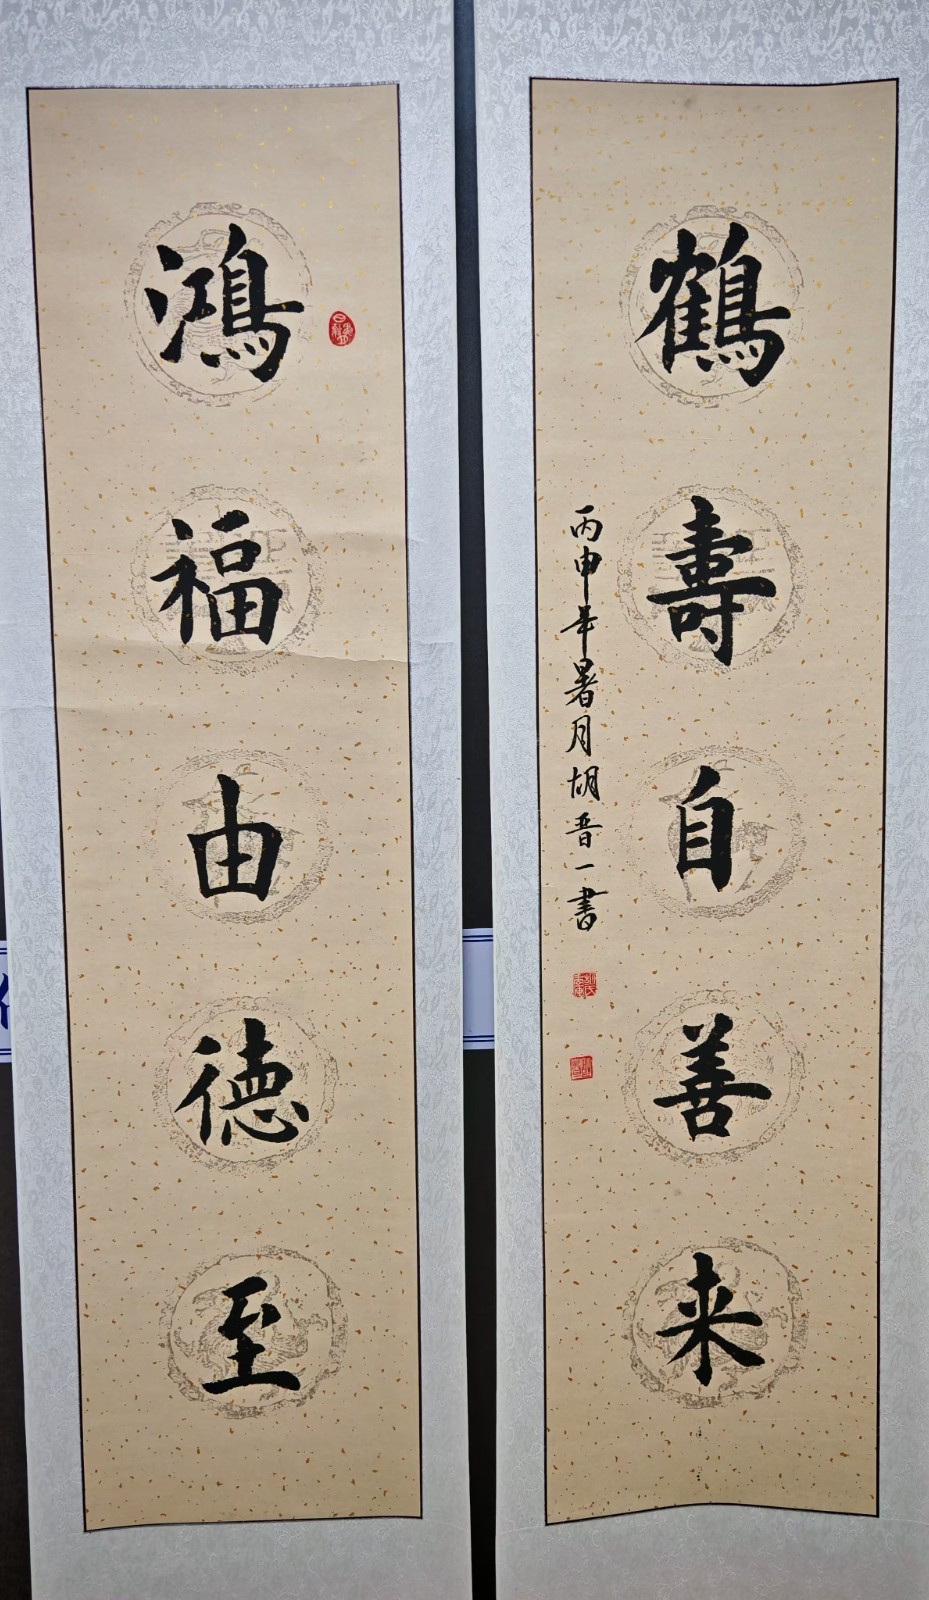 鶴壽自善来
丙申年暑月胡晋一書
鴻福由德至